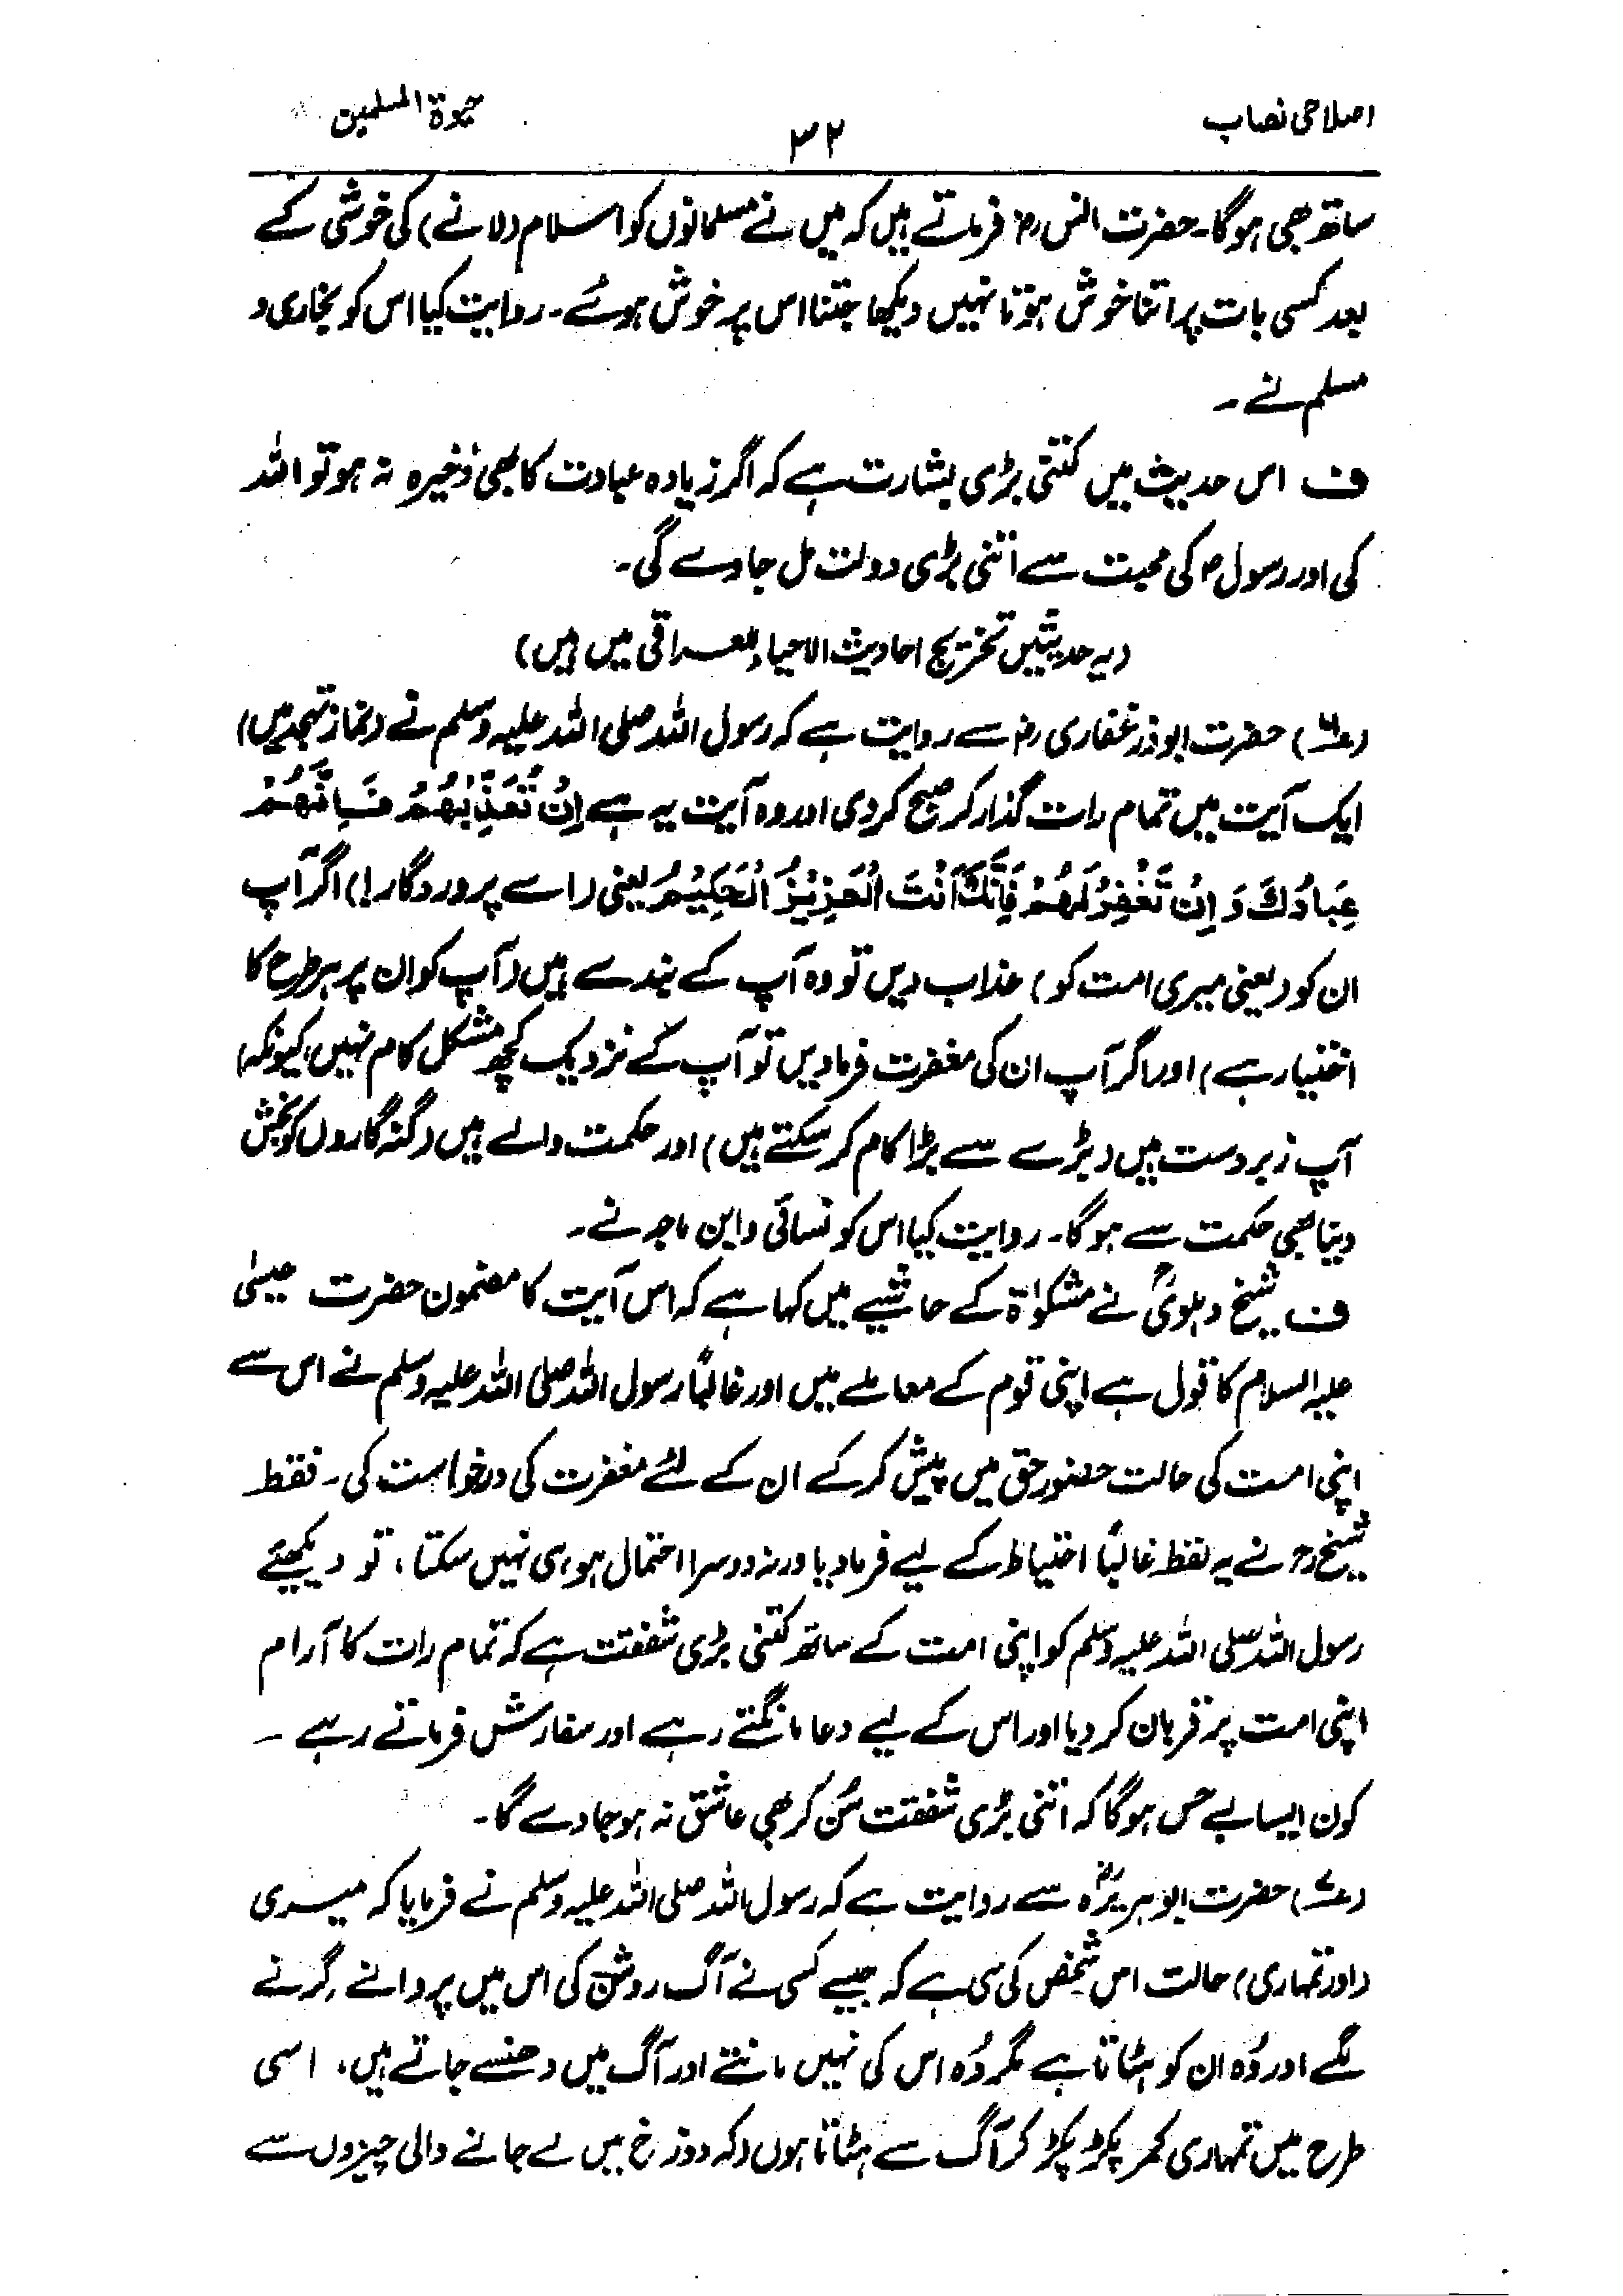 اصلاحی نصاب
۳۲
حیٰوۃ المسلمین
ساتھ بھی ہوگا۔ حضرت انس رض فرماتے ہیں کہ میں نے مسلمانوں کو اسلام (لانے) کی خوشی کے
بعد کسی بات پر اتنا خوش ہوتا نہیں دیکھا جتنا اس پر خوش ہوئے۔ روایت کیا اس کو بخاری و
مسلم نے۔
ف اس حدیث میں کتنی بڑی بشارت ہے کہ اگر زیادہ عبادت کا بھی ذخیرہ نہ ہو تو اللہ
کی اور رسول ص کی محبت سے اتنی بڑی دولت مل جاوے گی۔
(یہ حدیثیں تخریج احادیث الاحیاء للعراقی میں ہیں)
(۶) حضرت ابوذر غفاری رض سے روایت ہے کہ رسول اللہ صلی اللہ علیہ وسلم نے (نماز تہجد میں)
ایک آیت میں تمام رات گذار کر صبح کر دی اور وہ آیت یہ ہے اِنْ تُعَذِّبْھُمْ فَاِنَّھُمْ
عِبَادُكَ وَ اِنْ تَغْفِرْلَھُمْ فَاِنَّكَ اَنْتَ الْعَزِیْزُ الْحَکِیْمُ یعنی (اے پروردگار!) اگر آپ
ان کو (یعنی میری امت کو) عذاب دیں تو وہ آپ کے بندے ہیں (آپ کو ان پر ہر طرح کا
اختیار ہے) اور اگر آپ ان کی مغفرت فرمادیں تو آپ کے نزدیک کچھ مشکل کام نہیں (کیونکہ)
آپ زبردست ہیں (بڑے سے بڑا کام کر سکتے ہیں) اور حکمت والے ہیں (گنہ گاروں کو بخش
دینا بھی حکمت سے ہوگا۔ روایت کیا اس کو نسائی و ابن ماجہ نے۔
ف شیخ دہلویؒ نے مشکوٰۃ کے حاشیے میں کہا ہے کہ اس آیت کا مضمون حضرت عیسیٰ
علیہ السلام کا قول ہے اپنی قوم کے معاملے میں اور غالباً رسول اللہ صلی اللہ علیہ وسلم نے اس سے
اپنی امت کی حالت حضور حق میں پیش کر کے ان کے لئے مغفرت کی درخواست کی۔ فقط
شیخ رح نے یہ لفظ غالباً احتیاط کے لیے فرمادیا ورنہ دوسرا احتمال ہو ہی نہیں سکتا، تو دیکھئے
رسول اللہ صلی اللہ علیہ وسلم کو اپنی امت کے ساتھ کتنی بڑی شفقت ہے کہ تمام رات کا آرام
اپنی امت پر قربان کر دیا اور اس کے لیے دعا مانگتے رہے اور سفارش فرماتے رہے۔
کون ایسا بے حس ہوگا کہ اتنی بڑی شفقت سُن کر بھی عاشق نہ ہو جاوے گا۔
(۷) حضرت ابو ہریرہؓ سے روایت ہے کہ رسول اللہ صلی اللہ علیہ وسلم نے فرمایا کہ میری
(اور تمہاری) حالت اس شخص کی سی ہے کہ جیسے کسی نے آگ روشن کی اس میں پروانے گرنے
لگے اور وُہ ان کو ہٹاتا ہے مگر وُہ اس کی نہیں مانتے اور آگ میں دھنسے جاتے ہیں، اسی
طرح میں تمہاری کمر پکڑ پکڑ کر آگ سے ہٹاتا ہوں (کہ دوزخ میں لے جانے والی چیزوں سے